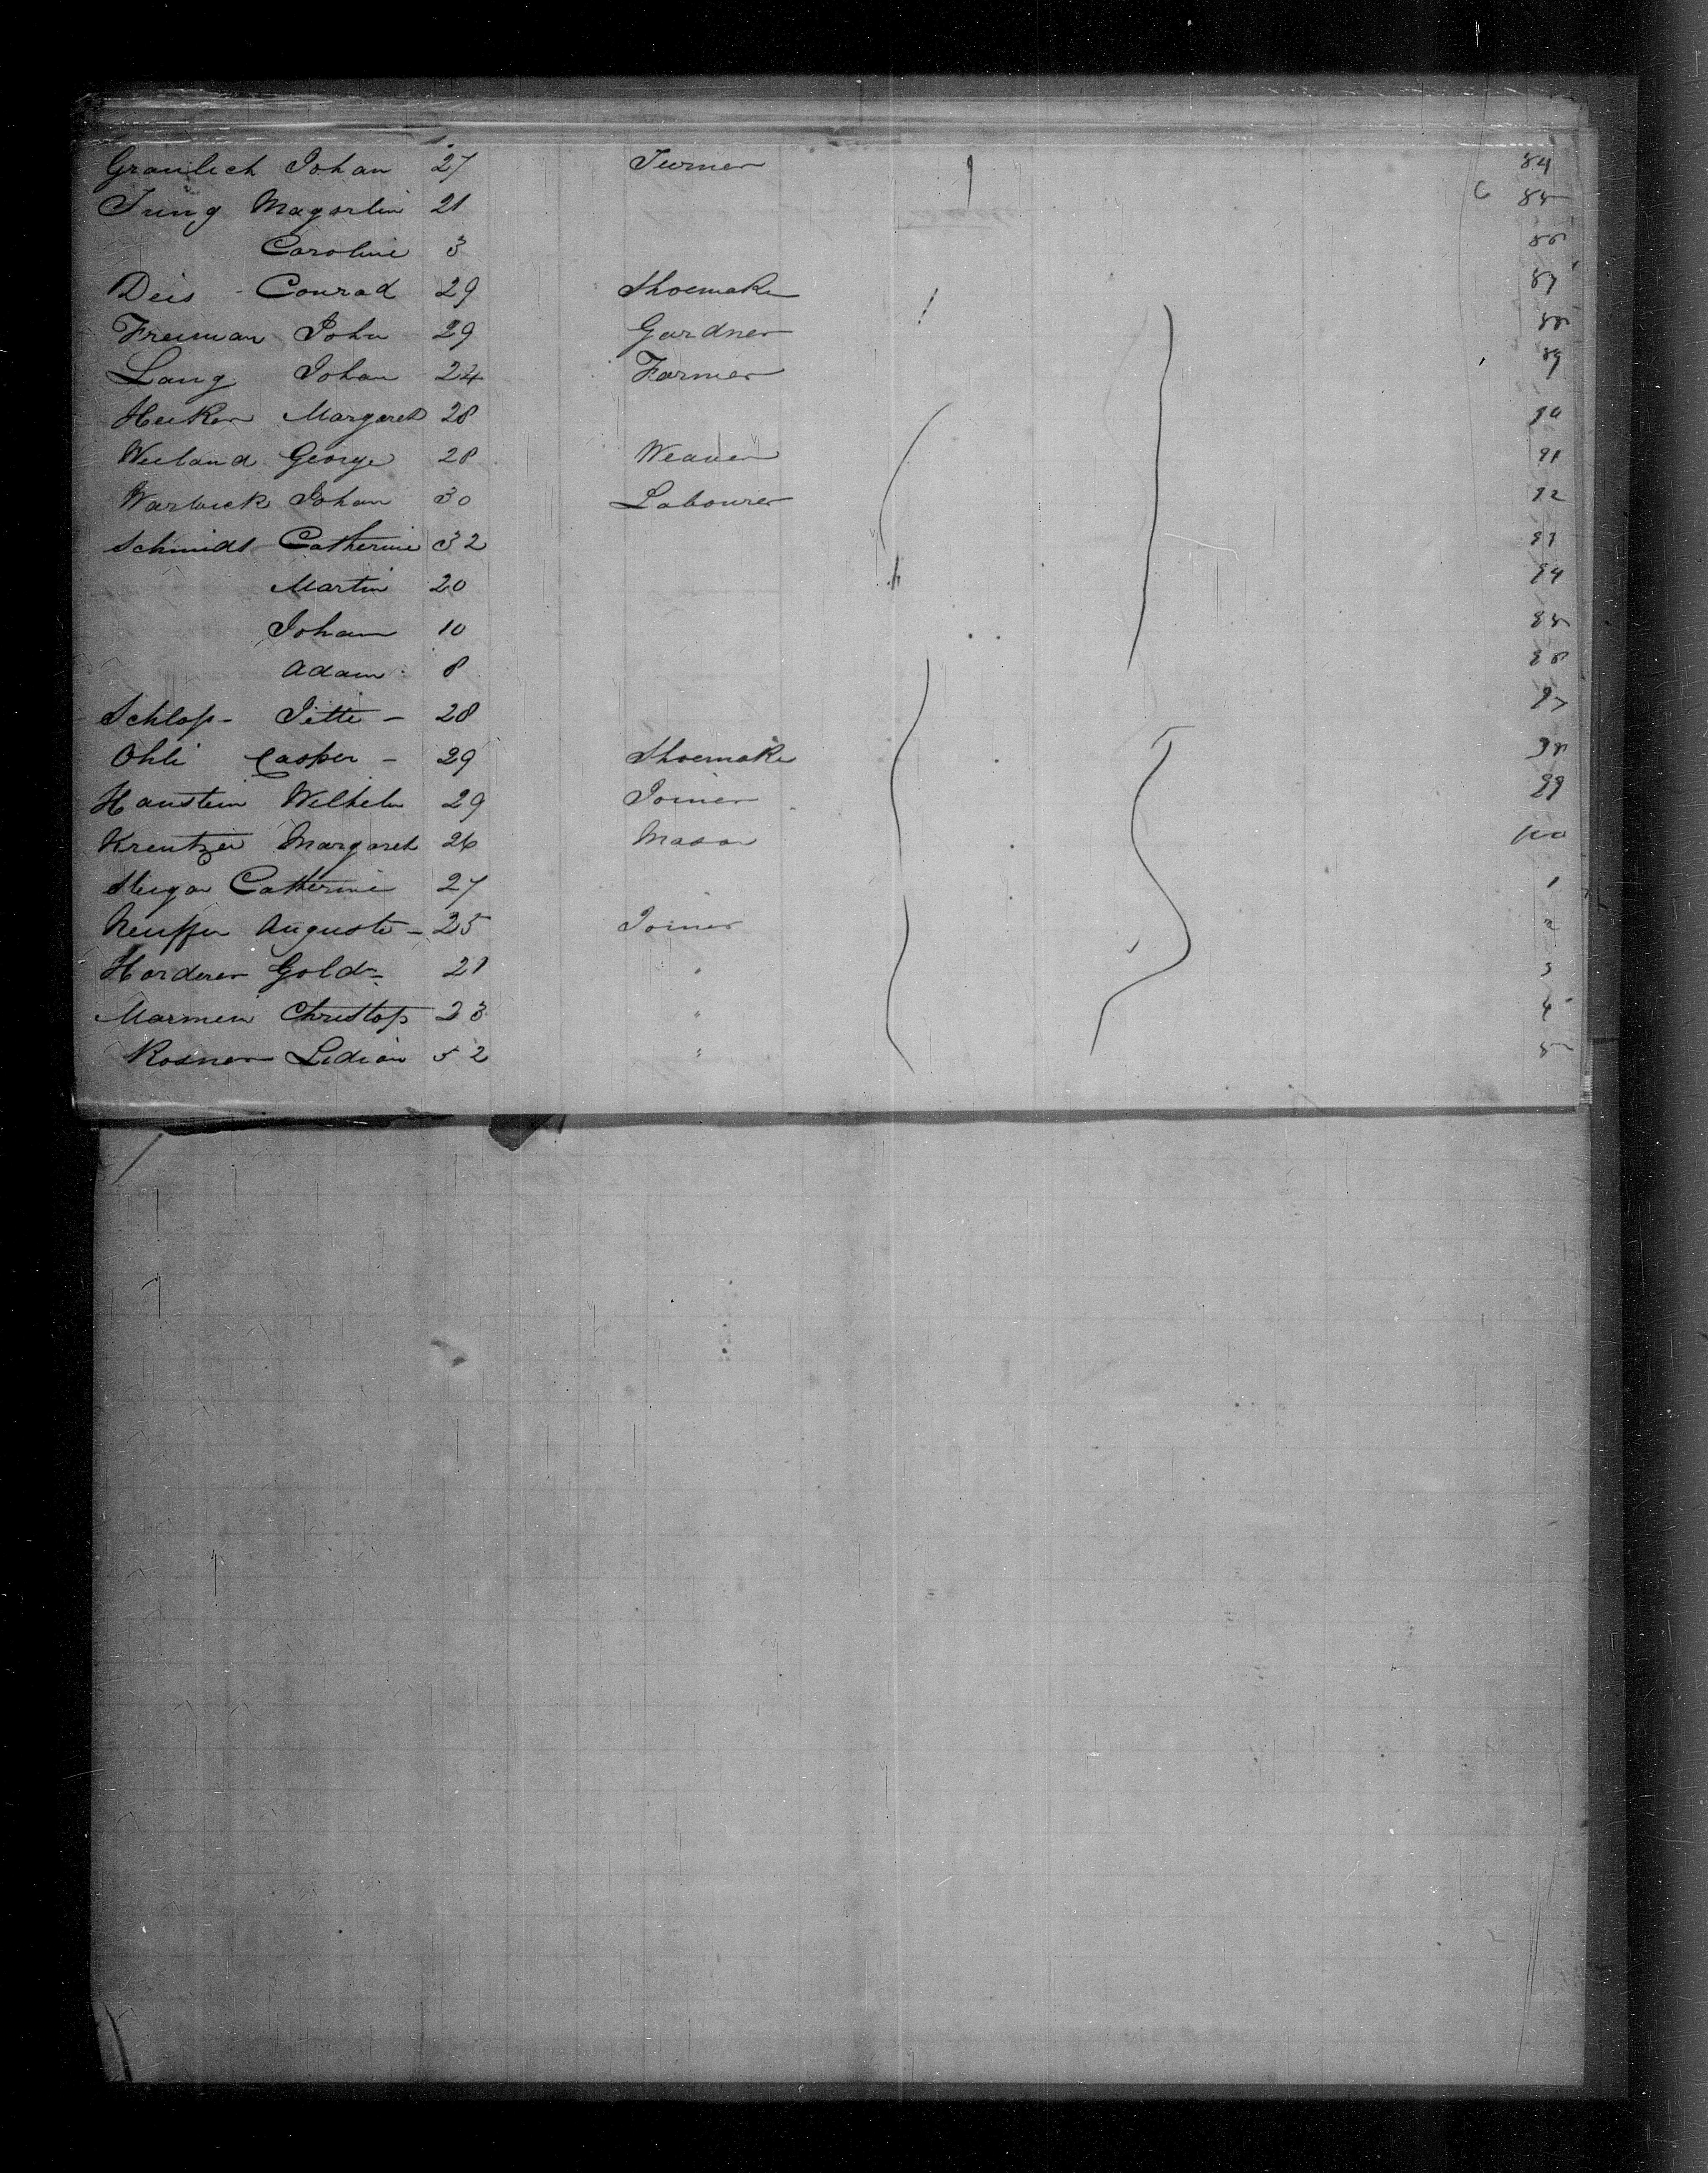 Graulich Johan 27 Turner 84
Jung Magarlin 21 C 85
Caroline 3 86
Deis - Conrad 29 Shoemake 87
Freuman John 29 Gardner 88
Lang Johan 24 Farmer 89
Heiker Margaret 28 90
Weiland George 28 Weaver 91
Warwick Johan 30 Labourer 92
Schmidt Catherine 32 93
Martin 20 94
Johann 10 95
Adam 8 96
Schlop - Jette - 28 97
Ohli Casper - 29 Shoemake 98
Haustein Wilhelm 29 Joiner 99
Kreutzer Margaret 26 Mason 100
Steigar Catherine 27 1
Neuffer Auguste - 25 Joiner 2
Harderer Gold 21 " 3
Marmein Christop 23 " 4
Rosner Lidian 52 " 5